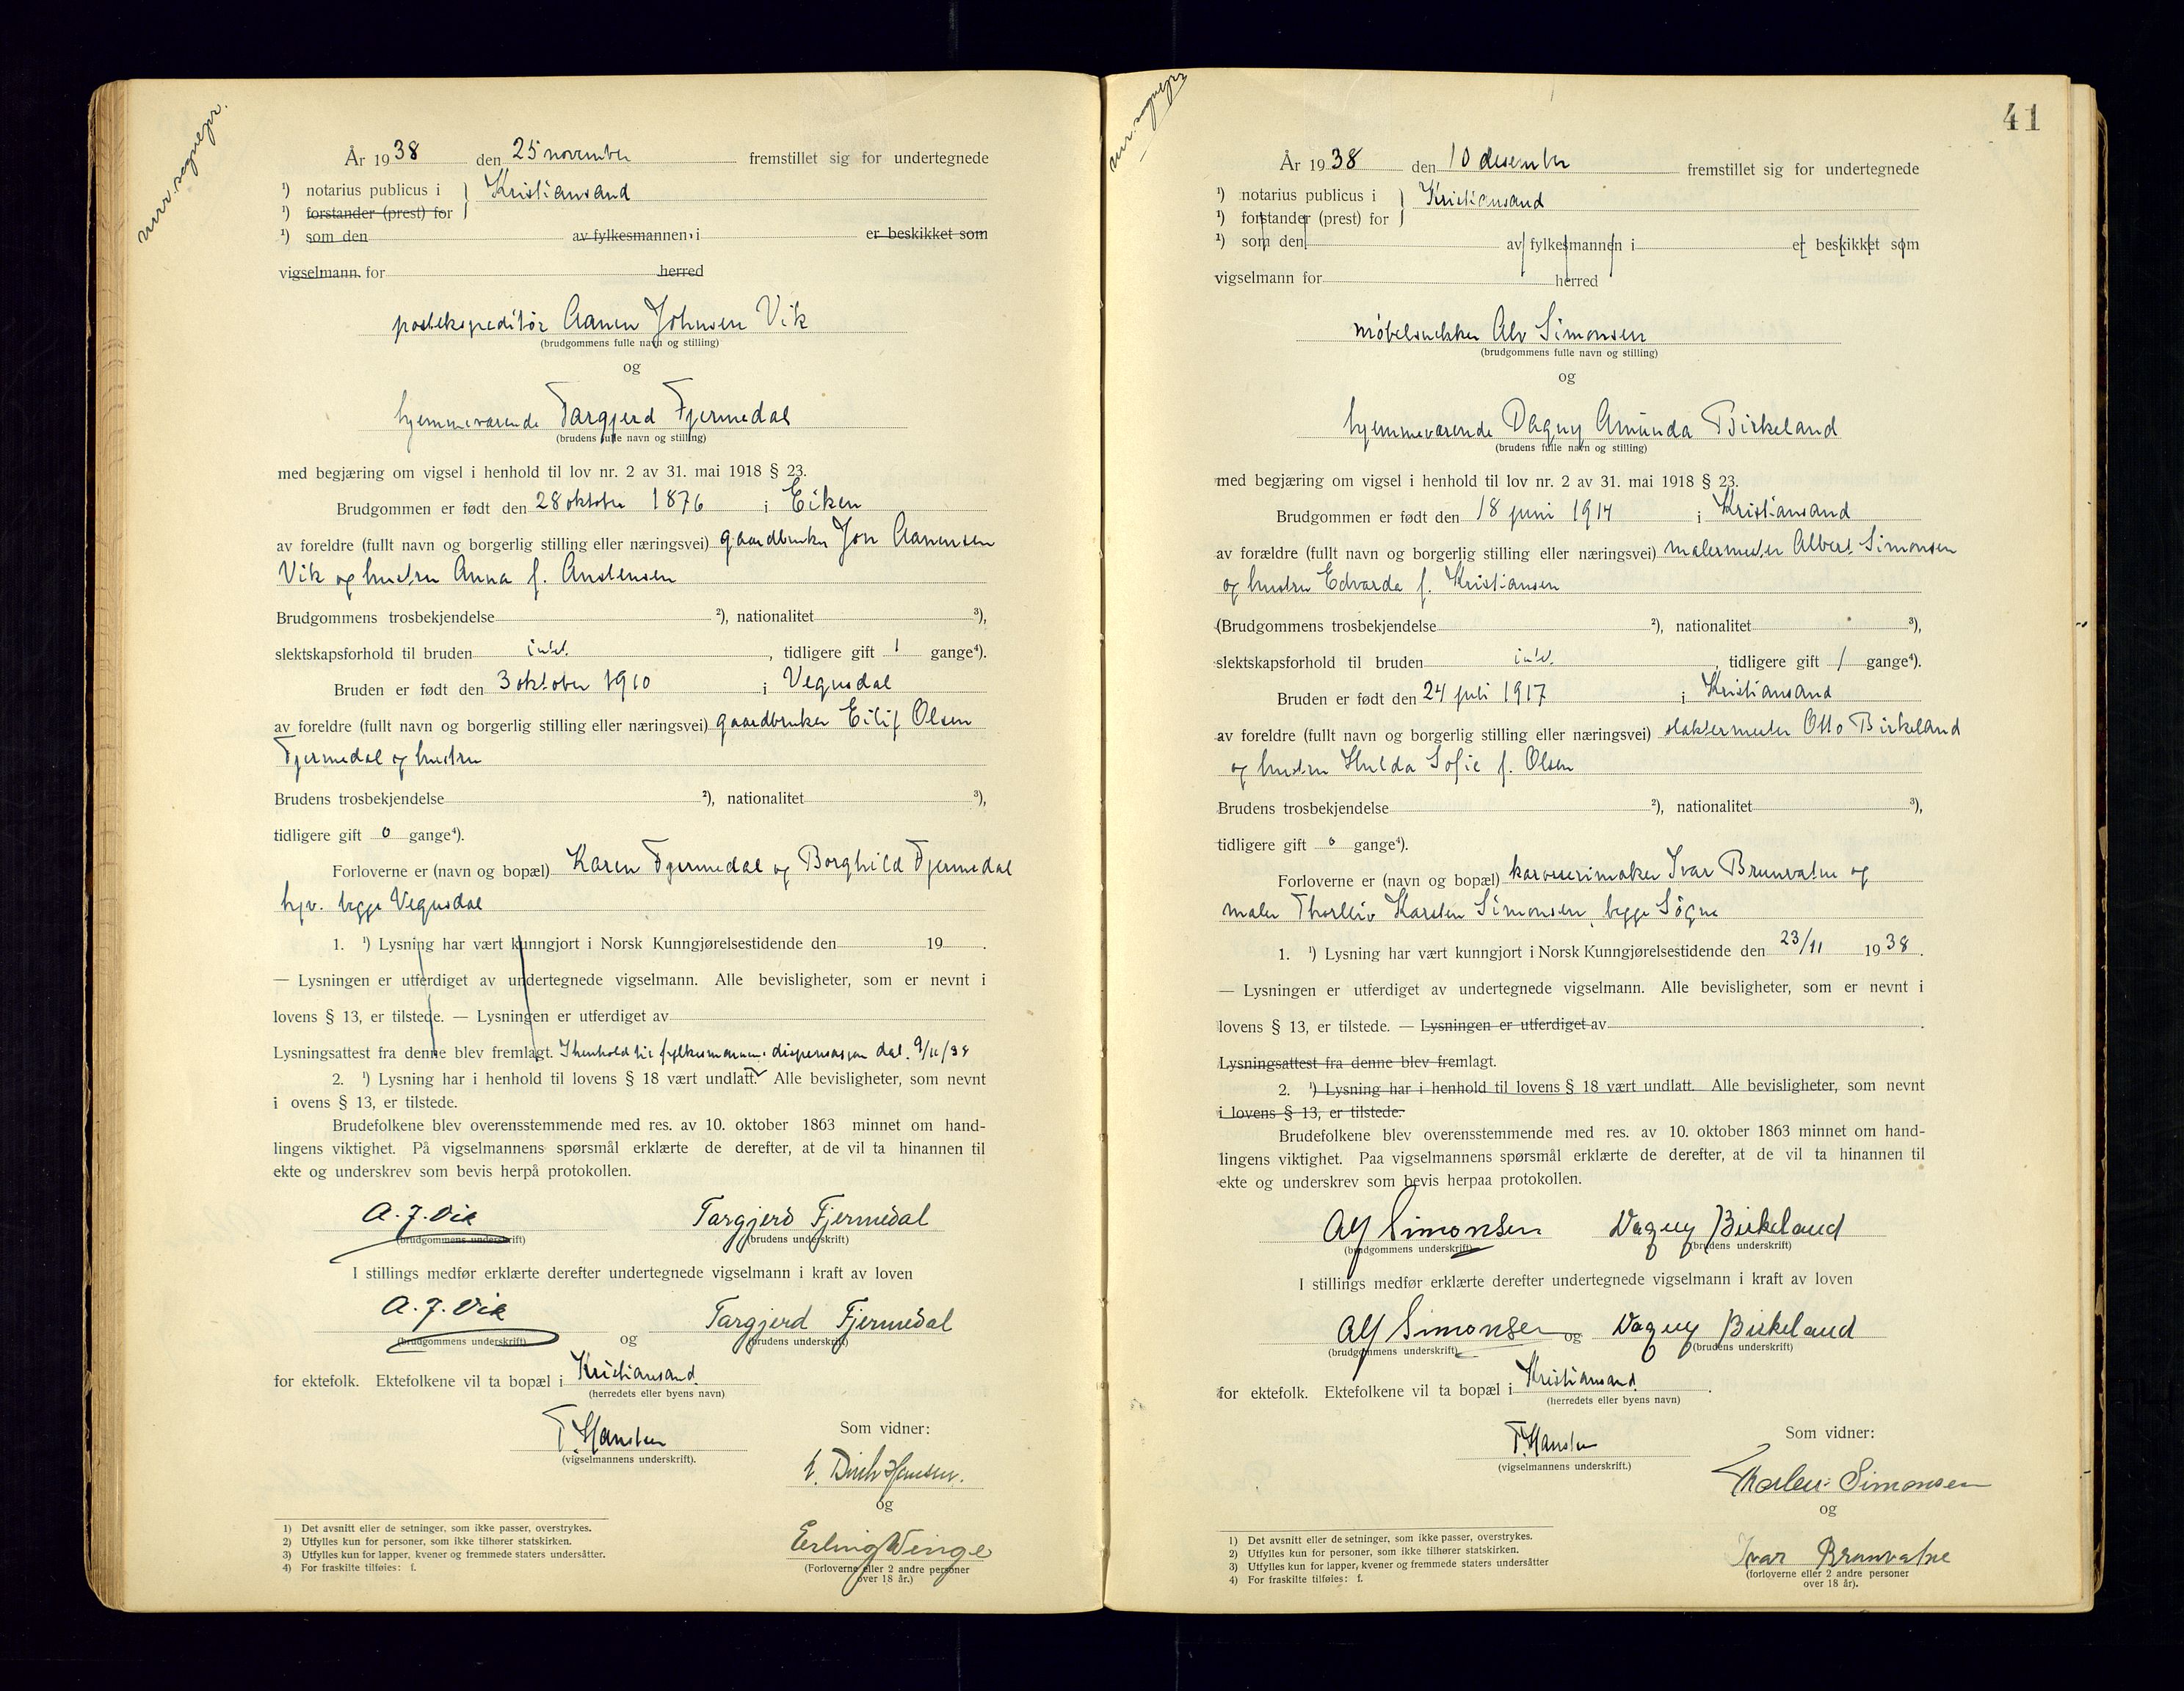 mrr. sognepr.
År 1938 den 25 november fremstillet sig for undertegnede
¹) notarius publicus i } Kristiansand
¹) forstander (prest) for
¹) som den av fylkesmannen i er beskikket som
vigselmann for herred
postekspeditør Aanen Johnsen Vik
(brudgommens fulle navn og stilling)
og
hjemmeværende Targjerd Fjermedal
(brudens fulle navn og stilling)
med begjæring om vigsel i henhold til lov nr. 2 av 31. mai 1918 § 23.
Brudgommen er født den 28 oktober 1876 i Eiken
av foreldre (fullt navn og borgerlig stilling eller næringsvei) gaardbruker Jon Aanensen
Vik og hustru Anna f. Anstensen
Brudgommens trosbekjendelse ²), nationalitet ³),
slektskapsforhold til bruden intet, tidligere gift 1 gange⁴).
Bruden er født den 3 oktober 1910 i Vegusdal
av foreldre (fullt navn og borgerlig stilling eller næringsvei) gaardbruker Eilif Olsen
Fjermedal og hustru
Brudens trosbekjendelse ²), nationalitet ³),
tidligere gift 0 gange⁴).
Forloverne er (navn og bopæl) Karen Fjermedal og Borghild Fjermedal
hjv. begge Vegusdal
1. ¹) Lysning har vært kunngjort i Norsk Kunngjørelsestidende den 19 .
— Lysningen er utferdiget av undertegnede vigselmann. Alle bevisligheter, som er nevnt i
lovens § 13, er tilstede. — Lysningen er utferdiget av
Lysningsattest fra denne blev fremlagt. I henhold til fylkesmannens dispensasjon dat. 9/11/38
2. ¹) Lysning har i henhold til lovens § 18 vært undlatt. Alle bevisligheter, som nevnt
i ovens § 13, er tilstede.
Brudefolkene blev overensstemmende med res. av 10. oktober 1863 minnet om hand-
lingens viktighet. På vigselmannens spørsmål erklærte de derefter, at de vil ta hinannen til
ekte og underskrev som bevis herpå protokollen.
A. J. Vik Targjerd Fjermedal
(brudgommens underskrift) (brudens underskrift)
I stillings medfør erklærte derefter undertegnede vigselmann i kraft av loven
A. J. Vik og Targjerd Fjermedal
(brudgommens underskrift) (brudens underskrift)
for ektefolk. Ektefolkene vil ta bopæl i Kristiansand
(herredets eller byens navn)
T. Hansten
(vigselmannens underskrift).
Som vidner:
Hansen.
og
Erling Winge
(Forloverne eller 2 andre personer
over 18 år.)
1) Det avsnitt eller de setninger, som ikke passer, overstrykes.
2) Utfylles kun for personer, som ikke tilhører statskirken.
3) Utfylles kun for lapper, kvener og fremmede staters undersåtter.
4) For fraskilte tilføies: f.
mrr. sognepr
41
År 1938 den 10 desember fremstillet sig for undertegnede
¹) notarius publicus i } Kristiansand
¹) forstander (prest) for
¹) som den av fylkesmannen i er beskikket som
vigselmann for herred
møbelsnekker Alv Simonsen
(brudgommens fulle navn og stilling)
og
hjemmeværende Dagny Amunda Birkeland
(brudens fulle navn og stilling)
med begjæring om vigsel i henhold til lov nr. 2 av 31. mai 1918 § 23.
Brudgommen er født den 18 juni 1914 i Kristiansand
av forældre (fullt navn og borgerlig stilling eller næringsvei) malermester Albert Simonsen
og hustru Edvarda f. Kristiansen
(Brudgommens trosbekjendelse ²), nationalitet ³),
slektskapsforhold til bruden intet, tidligere gift / gange⁴).
Bruden er født den 24 juli 1917 i Kristiansand
av foreldre (fullt navn og borgerlig stilling eller næringsvei) slaktermester Otto Birkeland
og hustru Hulda Sofie f. Olsen
Brudens trosbekjendelse ²), nationalitet ³),
tidligere gift 0 gange⁴).
Forloverne er (navn og bopæl) karosserimaker Ivar Brunvatne og
maler Thorleiv Karsten Simonsen, begge Søgne
1. ¹) Lysning har vært kunngjort i Norsk Kunngjørelsestidende den 23/11 1938.
— Lysningen er utferdiget av undertegnede vigselmann. Alle bevisligheter, som er nevnt i
lovens § 13, er tilstede. — Lysningen er utferdiget av .
Lysningsattest fra denne blev fremlagt.
2. ¹) Lysning har i henhold til lovens § 18 vært undlatt. Alle bevisligheter, som nevnt
i lovens § 13, er tilstede.
Brudefolkene blev overensstemmende med res. av 10. oktober 1863 minnet om hand-
lingens viktighet. Paa vigselmannens spørsmål erklærte de derefter, at de vil ta hinannen til
ekte og underskrev som bevis herpaa protokollen.
Alf Simonsen Dagny Birkeland
(brudgommens underskrift) (brudens underskrift)
I stillings medfør erklærte derefter undertegnede vigselmann i kraft av loven
Alf Simonsen og Dagny Birkeland
(brudgommens underskrift) (brudens underskrift)
for ektefolk. Ektefolkene vil ta bopæl i Kristiansand.
(herredets eller byens navn)
T. Hansten
(vigselmannens underskrift.)
Som vidner:
Thorleiv Simonsen
og
Ivar Brunvatne
(forloverne eller 2 andre personer
over 18 år).
1) Det avsnitt eller de setninger, som ikke passer, overstrykes.
2) Utfylles kun for personer, som ikke tilhører statskirken.
3) Utfylles kun for lapper, kvener og fremmede staters undersåtter
4) For fraskilte tilføies: f.